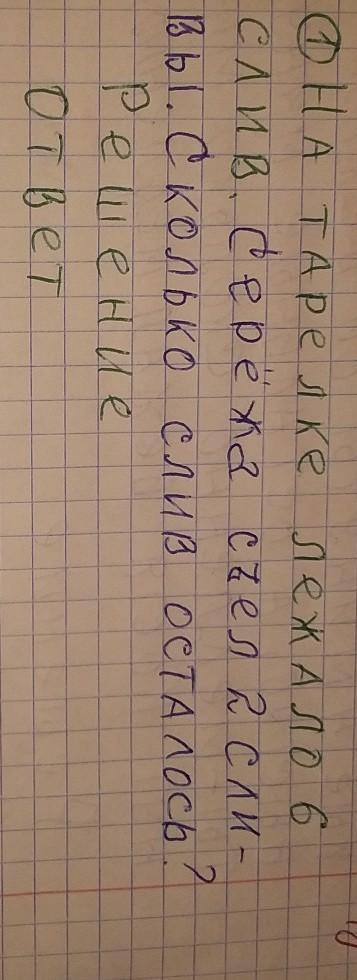 ① На тарелке лежало 6
слив. Серёжа съел 2 сли-
вы. Сколько слив осталось?
решение
ответ